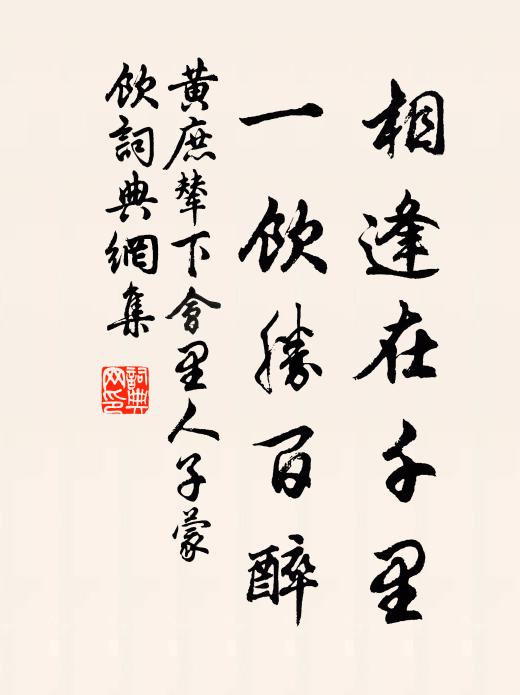 相逢在千里
一飲勝百醉
黃庶輦下會里人子蒙
飲詞典網集
詞典網印